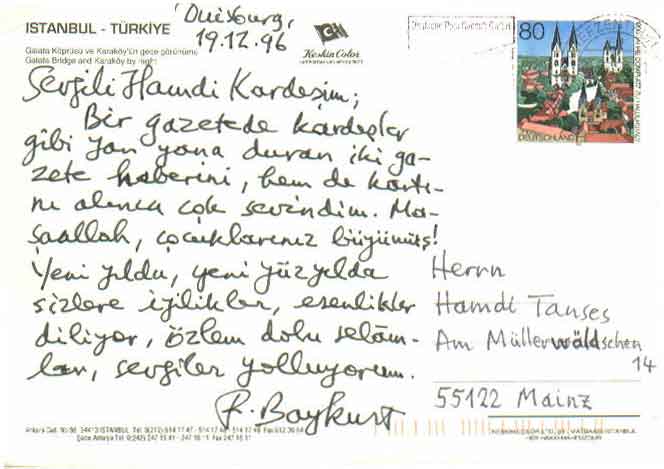 ISTANBUL - TÜRKİYE
Galata Köprüsü ve Karaköy'ün gece görünümü
Galata Bridge and Karaköy by night
Duisburg,
19.12.96
Keskin Color
80
DEUTSCHLAND
Sevgili Hamdi Kardeşim;
Bir gazetede kardeşler
gibi yan yana duran iki ga-
zete haberini, hem de kartı-
nı alınca çok sevindim. Ma-
şaallah, çocuklarınız büyümüş!
Yeni yılda, yeni yüzyılda
sizlere iyilikler, esenlikler
diliyor, özlem dolu selâm-
lar, sevgiler yolluyorum.
F. Baykurt
Herrn
Hamdi Tanses
Am Müllerwäldschen
14
55122 Mainz